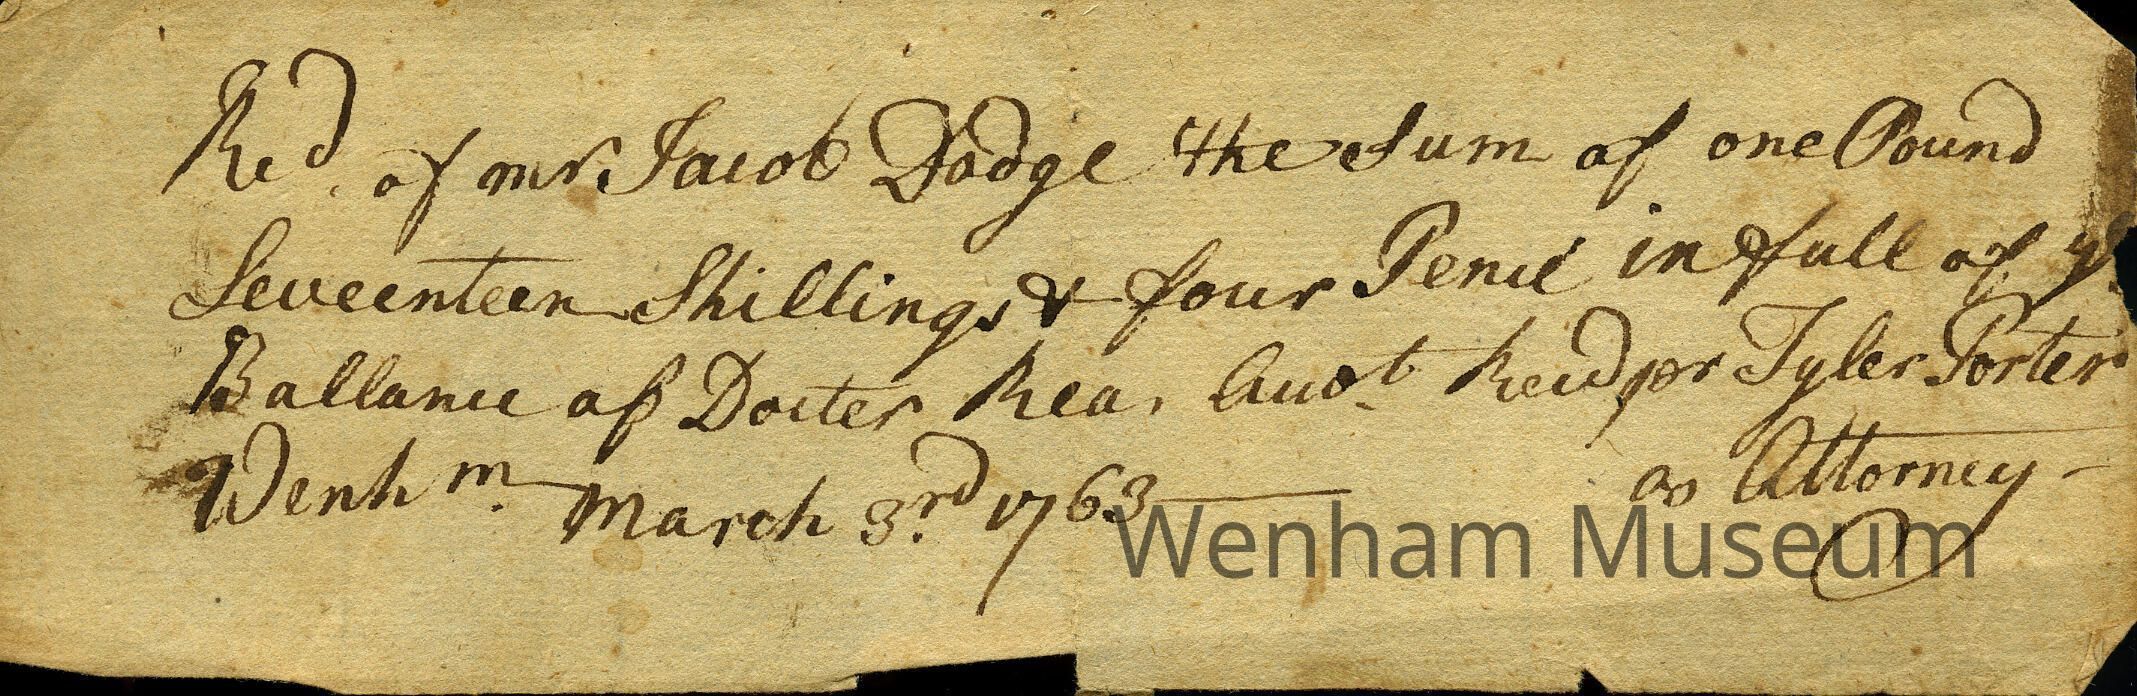 Recd. of mr. Jacob Dodge the Sum of one Pound
Seveenteen Shillings & four Pence in full of ye
Ballance of Docter Rea, Accot. Recd pr Tyler Porter
Wenhm. March 3.rd 1763 as Attorney
Wenham Museum